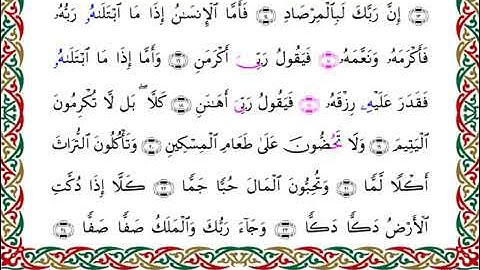 إِنَّ رَبَّكَ لَبِٱلْمِرْصَادِ فَأَمَّا ٱلْإِنسَٰنُ إِذَا مَا ٱبْتَلَىٰهُۥ رَبُّهُۥ
فَأَكْرَمَهُۥ وَنَعَّمَهُۥ فَيَقُولُ رَبِّيَ أَكْرَمَنِ وَأَمَّا إِذَا مَا ٱبْتَلَىٰهُۥ
فَقَدَرَ عَلَيْهِ رِزْقَهُۥ فَيَقُولُ رَبِّيَ أَهَٰنَنِ كَلَّا ۖ بَل لَّا تُكْرِمُونَ
ٱلْيَتِيمَ وَلَا تَحُضُّونَ عَلَىٰ طَعَامِ ٱلْمِسْكِينِ وَتَأْكُلُونَ ٱلتُّرَاثَ
أَكْلًا لَّمًّا وَتُحِبُّونَ ٱلْمَالَ حُبًّا جَمًّا كَلَّا إِذَا دُكَّتِ
ٱلْأَرْضُ دَكًّا دَكًّا وَجَآءَ رَبُّكَ وَٱلْمَلَكُ صَفًّا صَفًّا